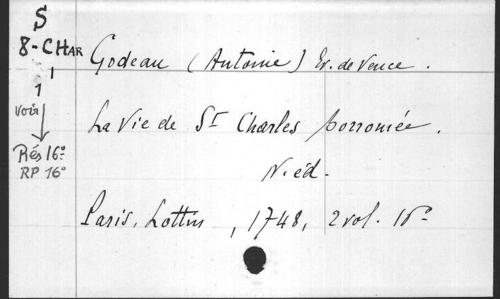 S
8-CHAR
1
1
voir
Rés 16°
RP 16°
Godeau (Antoine) Ev. de Vence.
La Vie de St Charles borromée.
N. éd.
Paris, Lottin, 1748, 2 vol. 16°